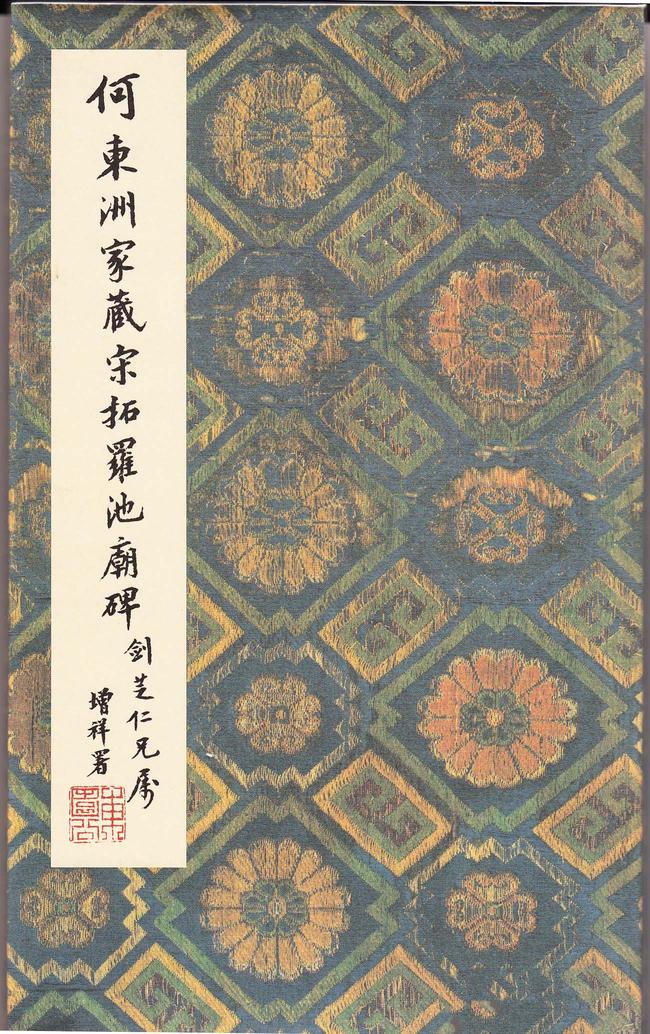 何東洲家藏宋拓羅池廟碑
劍芝仁兄属
增祥署